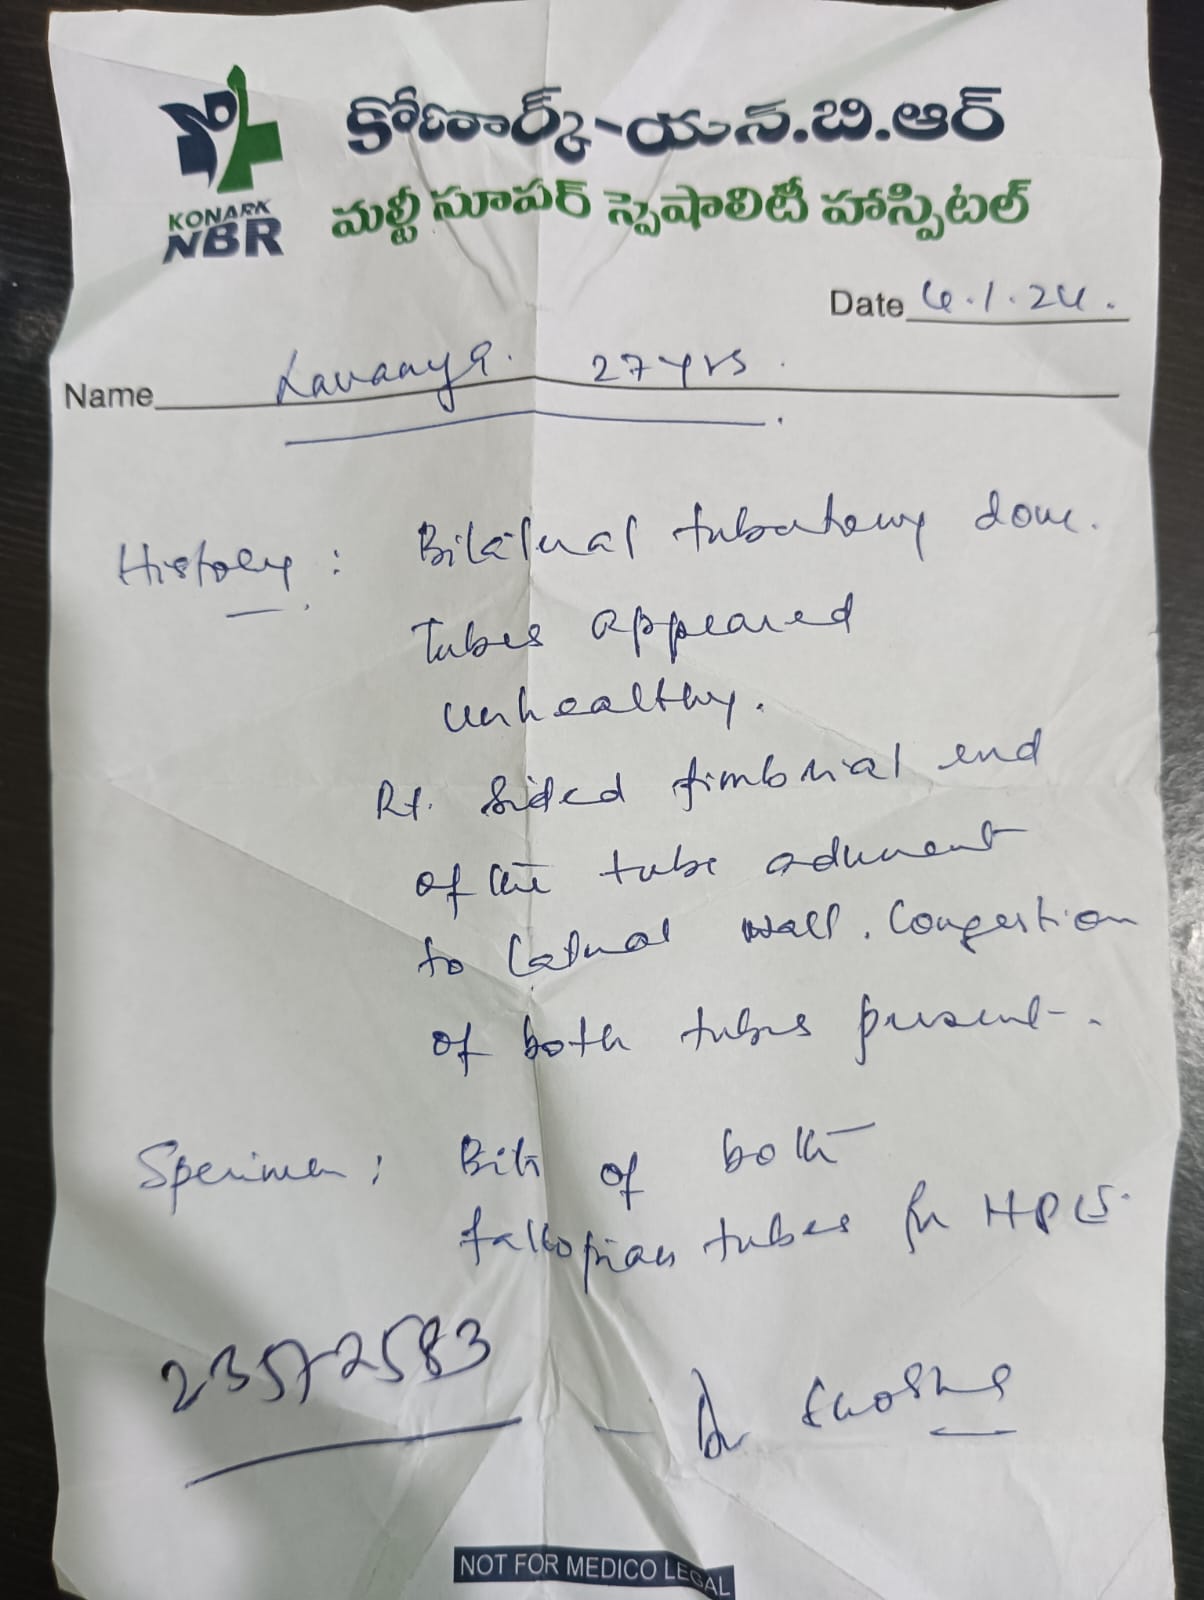 కోణార్క్-యన్.బి.ఆర్
మల్టీ సూపర్ స్పెషాలిటీ హాస్పిటల్
KONARK
NBR
Date 4.1.24.
Name Lavaanya. 27 yrs.
History: Bilateral tubectomy done.
Tubes appeared
unhealthy.
Rt. Sided fimbrial end
of the tube adherent
to lateral wall. Congestion
of both tubes present.
Specimen: Bits of both
fallopian tubes for HPE.
23572583
- Dr
NOT FOR MEDICO LEGAL